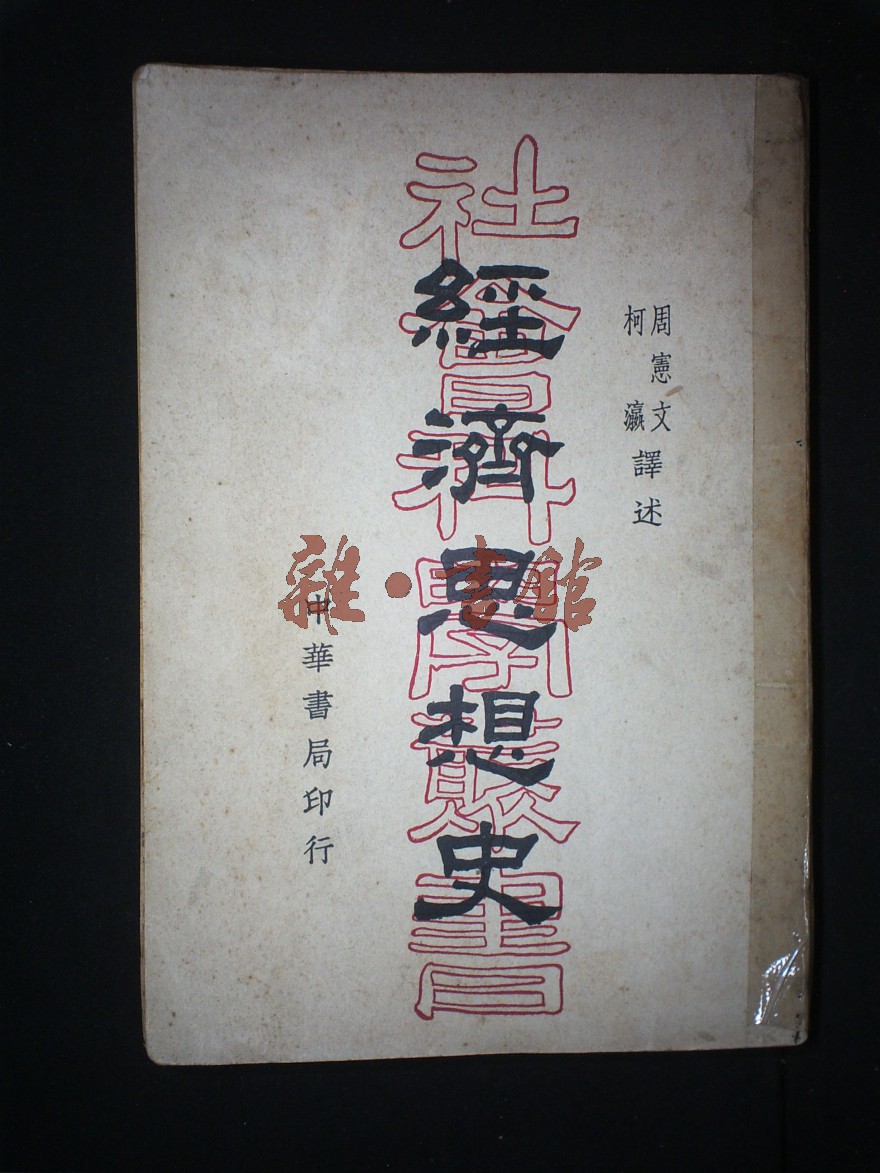 周憲文
柯瀛
譯述
社會科學叢書
經濟思想史
中華書局印行
雜·書館